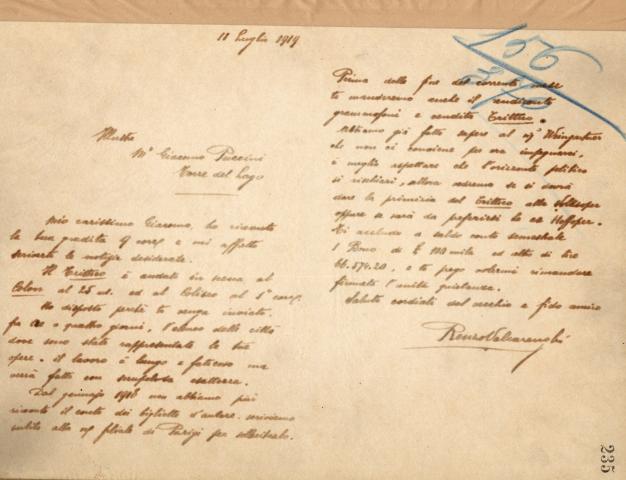 11 Luglio 1919
Illustre
M° Giacomo Puccini
Torre del Lago
Mio carissimo Giacomo, ho ricevuto
la tua gradita 9 corr. e mi affretto
scriverti le notizie desiderate.
Il Trittico è andato in scena al
Colon al 25 ut. ed al Coliseo al 1° corr.
Ho disposto perchè ti venga inviato,
fra tre o quattro giorni, l'elenco delle città
dove sono state rappresentate le tue
opere. il lavoro è lungo e faticoso ma
verrà fatto con scrupolosa esattezza.
Dal gennajo 1918 non abbiamo più
ricevuto il conto dei biglietti d'autore. scriviamo
subito alla filiale di Parigi per sollecitarlo.
156
Prima della fine del corrente mese
ti manderemo anche il rendiconto
grammofoni e vendita Trittico.
Abbiamo già fatto sapere al Weingartner
che non ci conviene per ora impegnarci,
è meglio aspettare che l'orizzonte politico
si rischiari, allora vedremo se si dovrà
dare la primizia del Trittico alla Volksoper
oppure se sarà da preferirsi la ex Hofoper.
Ti accludo a saldo conto semestrale
1 Bono di £ 100 mila ed altro di lire
66.574.20, e ti prego volermi rimandare
firmata l'unita quietanza.
Saluti cordiali del vecchio e fido amico
Renzo Valcarenghi
235